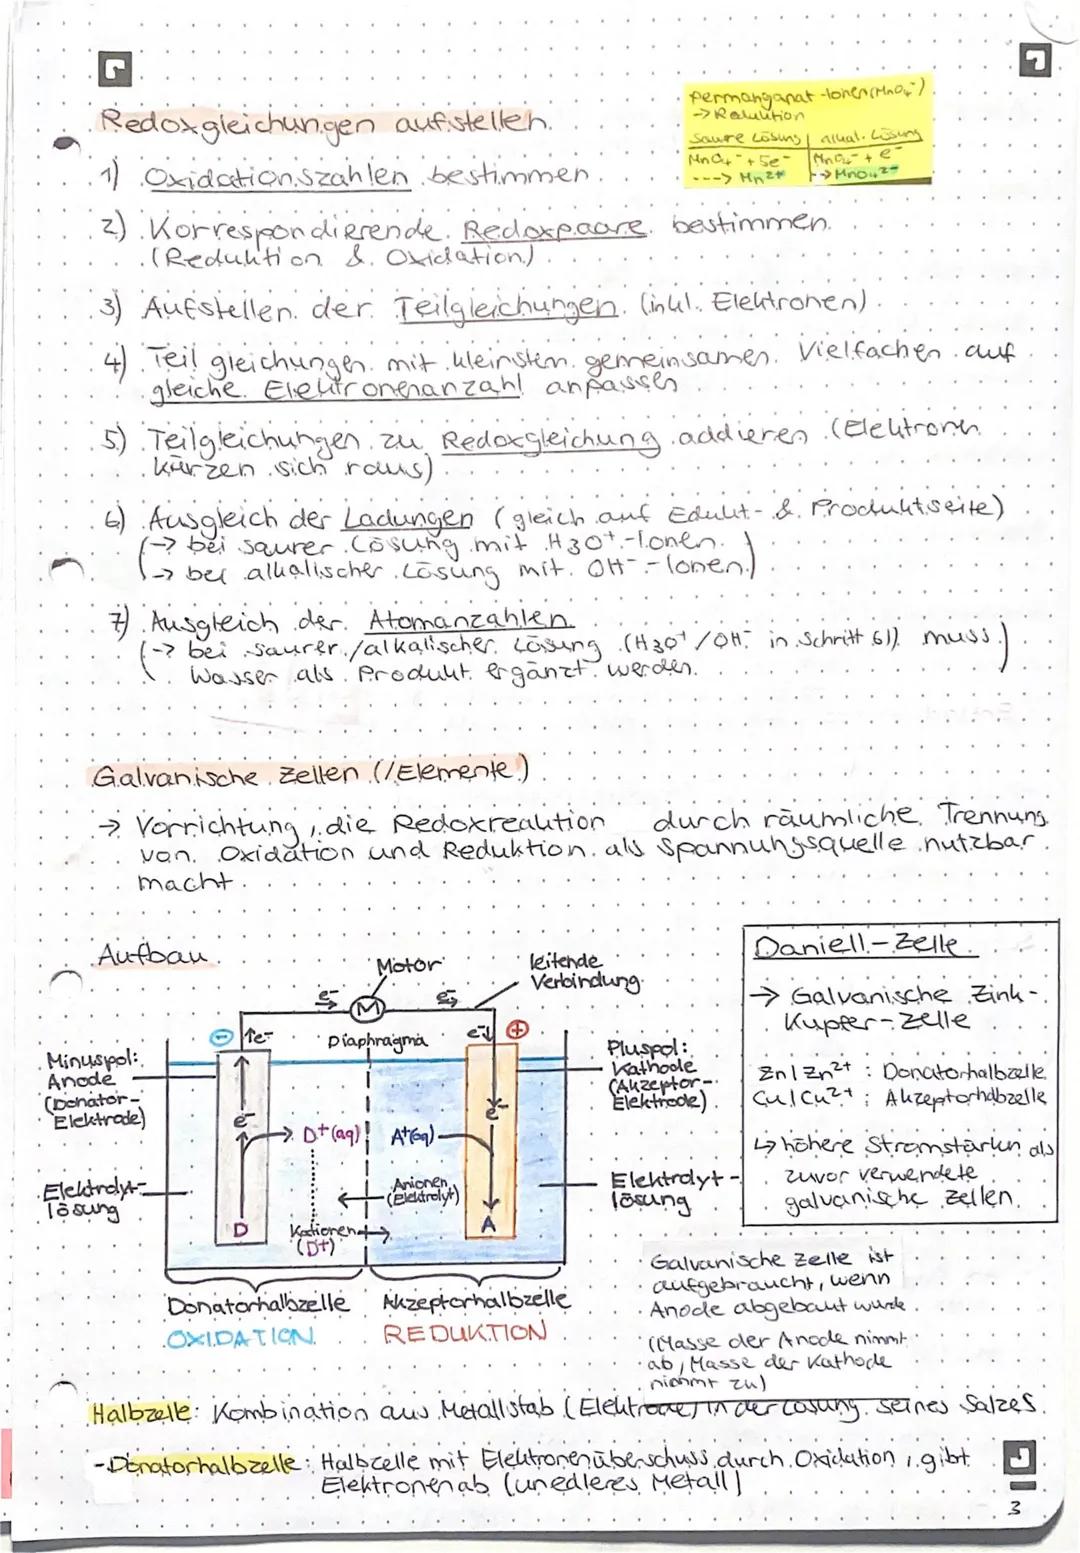 Redoxgleichungen aufstellen.
Permanganat-Ionen (MnO₄⁻)
→ Reduktion
Saure Lösung | alkal. Lösung
MnO₄⁻ + 5e⁻ | MnO₄⁻ + e⁻
---> Mn²⁺ | --> MnO₄²⁻
1) Oxidationszahlen bestimmen.
2) Korrespondierende Redoxpaare bestimmen.
(Reduktion & Oxidation)
3) Aufstellen der Teilgleichungen (inkl. Elektronen)
4) Teilgleichungen mit kleinstem gemeinsamen Vielfachen auf
gleiche Elektronenanzahl anpassen
5) Teilgleichungen zu Redoxgleichung addieren (Elektronen
kürzen sich raus)
6) Ausgleich der Ladungen (gleich auf Edukt- & Produktseite)
(→ bei saurer Lösung mit H3O⁺-Ionen.
→ bei alkalischer Lösung mit OH⁻-Ionen.)
7) Ausgleich der Atomanzahlen
(→ bei saurer/alkalischer Lösung (H3O⁺/OH⁻ in Schritt 6)) muss
Wasser als Produkt ergänzt werden.)
Galvanische Zellen (/Elemente)
→ Vorrichtung, die Redoxreaktion durch räumliche Trennung
von Oxidation und Reduktion als Spannungsquelle nutzbar
macht.
Aufbau
Motor
leitende
Verbindung
e⁻
M
e⁻
⊖
e⁻
Diaphragma
e⁻
⊕
Minuspol:
Anode
(Donator-
Elektrode)
Pluspol:
Kathode
(Akzeptor-
Elektrode)
e⁻
D⁺(aq)
A⁺(aq)
e⁻
Elektrolyt-
lösung
Anionen
(Elektrolyt)
Elektrolyt-
lösung
D
Kationen
(D⁺)
A
Donatorhalbzelle
Akzeptorhalbzelle
OXIDATION
REDUKTION
Daniell-Zelle
→ Galvanische Zink-
Kupfer-Zelle
Zn|Zn²⁺ : Donatorhalbzelle
Cu|Cu²⁺ : Akzeptorhalbzelle
↳ höhere Stromstärken als
zuvor verwendete
galvanische Zellen.
Galvanische Zelle ist
aufgebraucht, wenn
Anode abgebaut wurde
(Masse der Anode nimmt
ab, Masse der Kathode
nimmt zu)
Halbzelle: Kombination aus Metallstab (Elektrode) in der Lösung seines Salzes.
- Donatorhalbzelle: Halbzelle mit Elektronenüberschuss durch Oxidation, gibt
Elektronen ab (unedleres Metall)
3